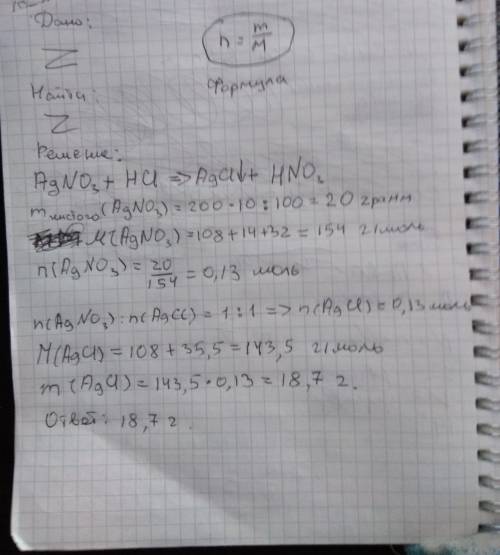 Дано:
n = m/M
Z
формула
Найти:
Z
Решение:
AgNO₃ + HCl => AgCl↓ + HNO₃
m чистого (AgNO₃) = 200 · 10 : 100 = 20 грамм
M(AgNO₃) = 108 + 14 + 32 = 154 г/моль
n(AgNO₃) = 20/154 = 0,13 моль
n(AgNO₃) : n(AgCl) = 1 : 1 => n(AgCl) = 0,13 моль
M(AgCl) = 108 + 35,5 = 143,5 г/моль
m(AgCl) = 143,5 · 0,13 = 18,7 г.
Ответ: 18,7 г.